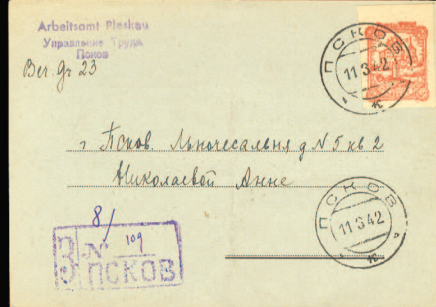 Arbeitsamt Pleskau
Управление Труда
Псков
Ber. Gr 23
ПСКОВ
11 3 42
г Псков. Льночесальня д N 5 кв 2
Николаевой Анне
8/
З № 109
ПСКОВ
ПСКОВ
11 3 42